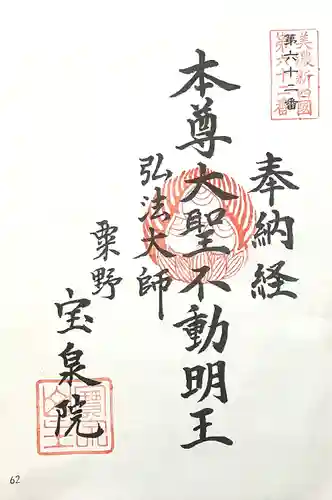 美濃新四國
第六十二番
奉納経
本尊大聖不動明王
弘法大師
粟野
宝泉院
62